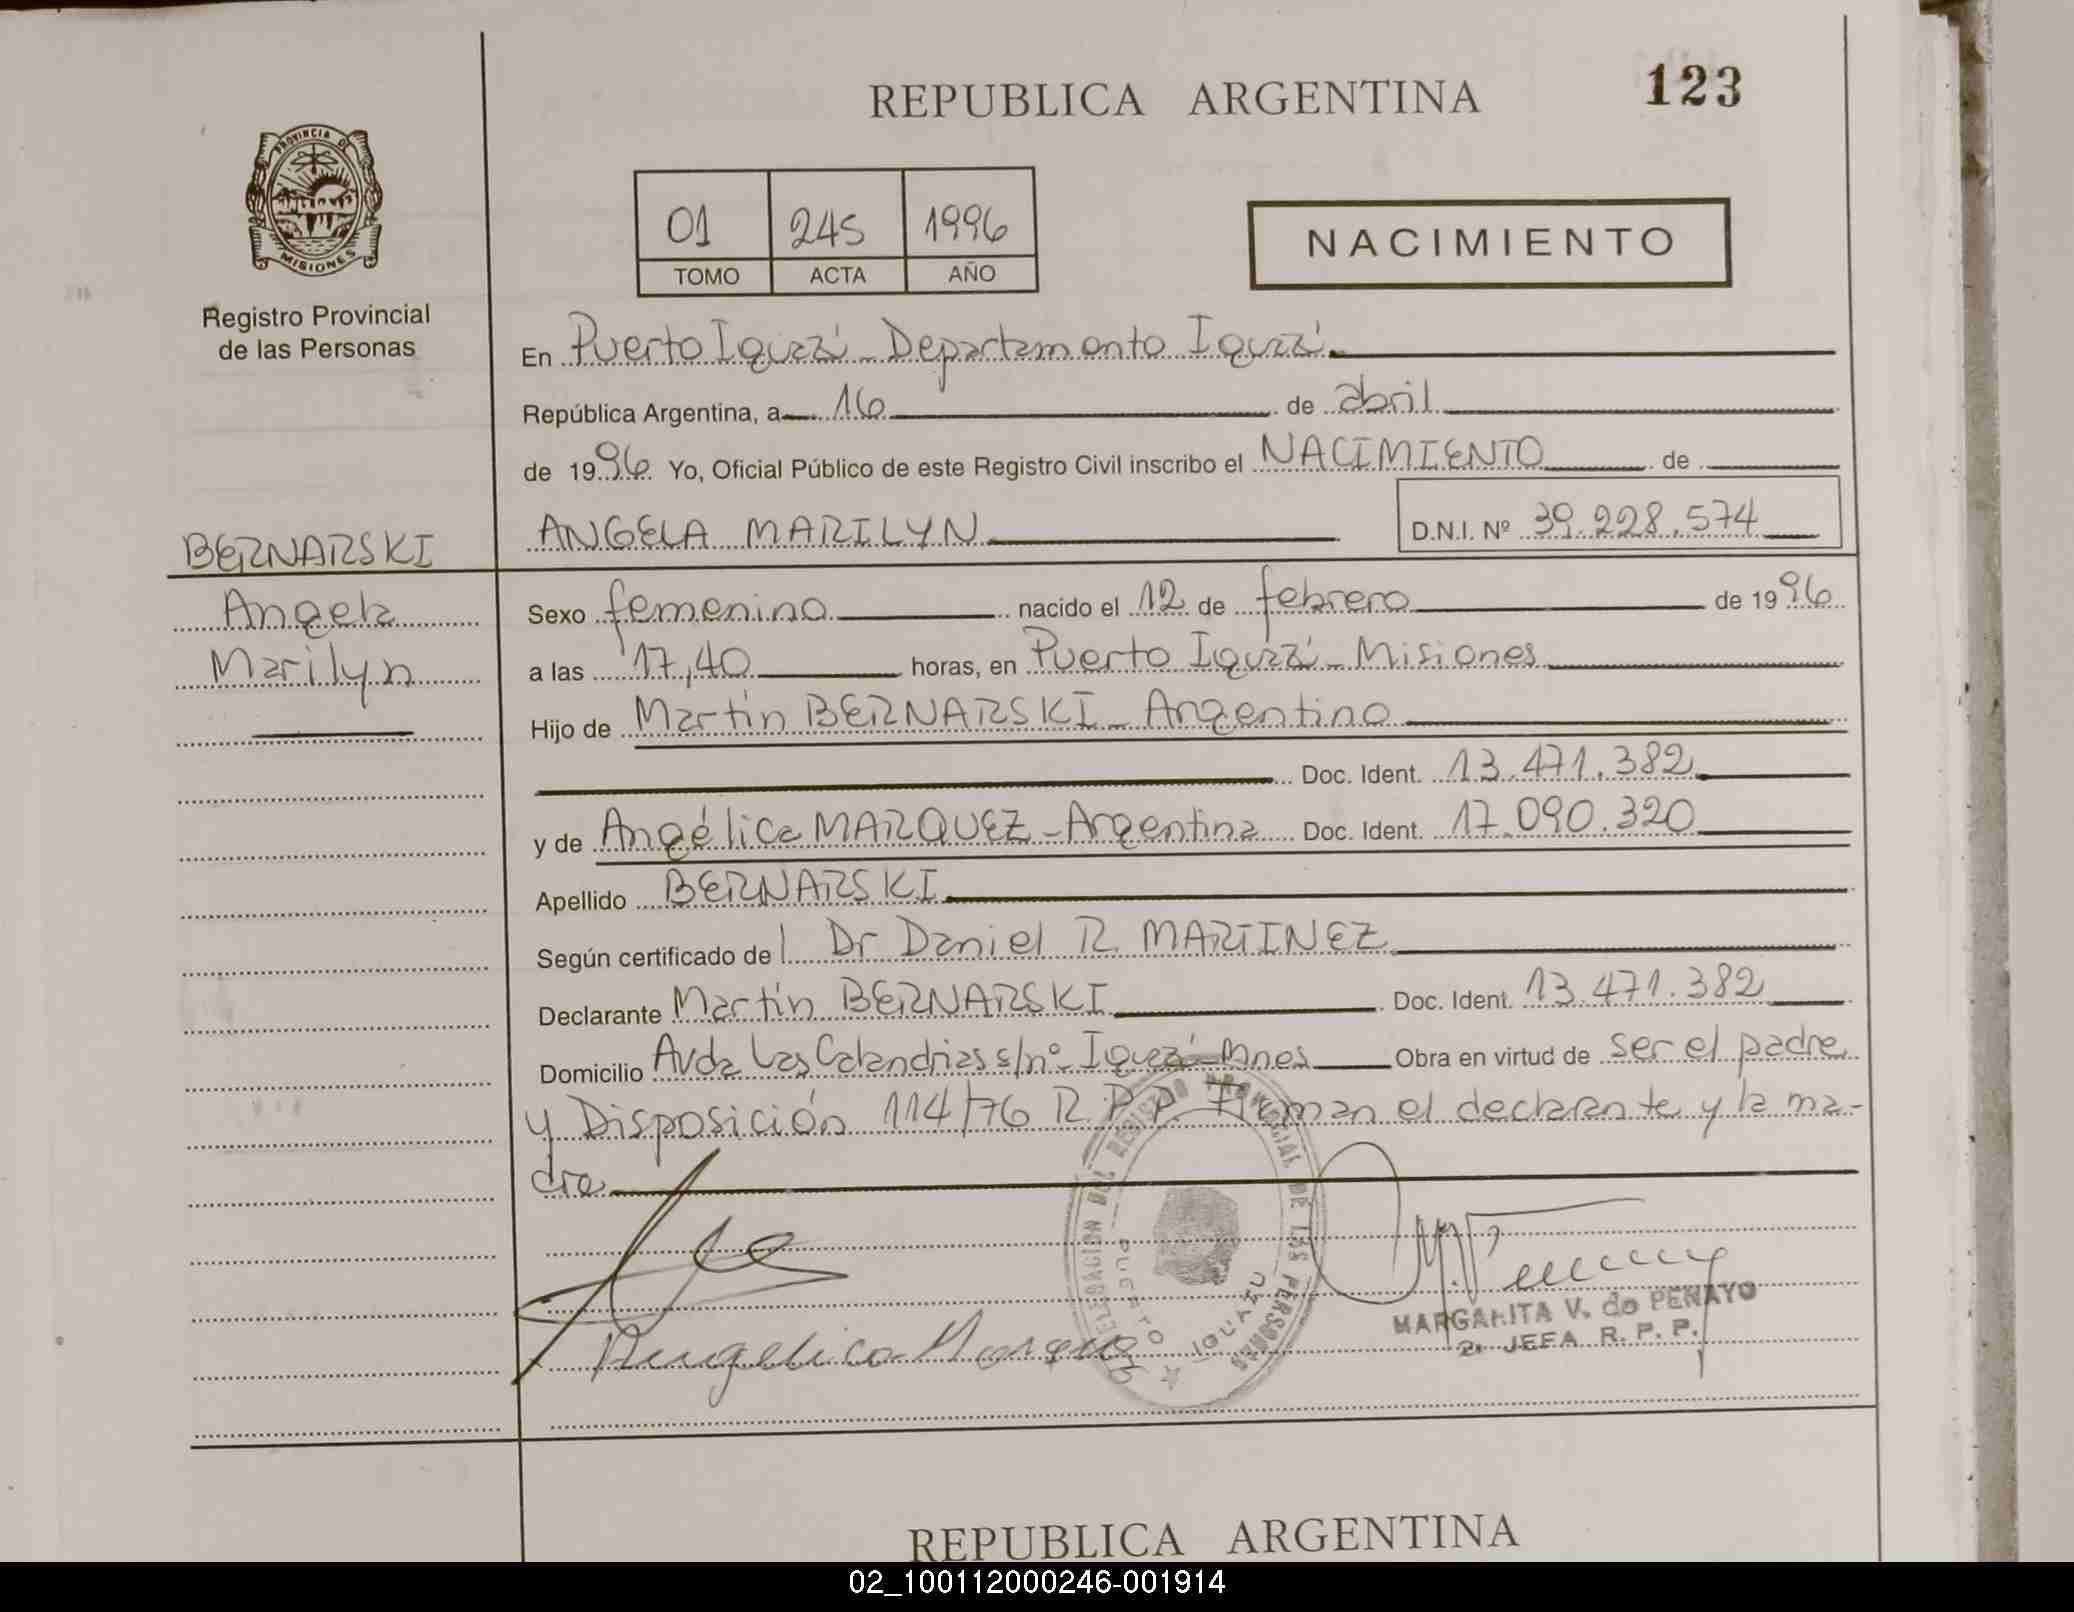 REPUBLICA ARGENTINA
123
PROVINCIA DE
MISIONES
Registro Provincial
de las Personas
01 245 1996
TOMO ACTA AÑO
NACIMIENTO
En Puerto Iguazú - Departamento Iguazú
República Argentina, a 16 de abril
de 1996 Yo, Oficial Público de este Registro Civil inscribo el NACIMIENTO de
ANGELA MARILYN D.N.I. Nº 39.228.574
BERNARSKI
Angela
Marilyn
Sexo femenino nacido el 12 de febrero de 1996
a las 17,40 horas, en Puerto Iguazú - Misiones
Hijo de Martín BERNARSKI - Argentino
Doc. Ident. 13.471.382
y de Angélica MARQUEZ - Argentina Doc. Ident. 17.090.320
Apellido BERNARSKI
Según certificado del Dr Daniel R. MARTINEZ
Declarante Martín BERNARSKI Doc. Ident. 13.471.382
Domicilio Avda Las Calandrias s/nº Iguazú - Mnes Obra en virtud de ser el padre
y Disposición 114/76 R.P.P. Firman el declarante y la ma-
dre
DELEGACION DEL REGISTRO PROVINCIAL DE LAS PERSONAS
PUERTO IGUAZU
Angelica Marquez
MARGARITA V. de PENAYO
2a JEFA R. P. P.
REPUBLICA ARGENTINA
02_100112000246-001914